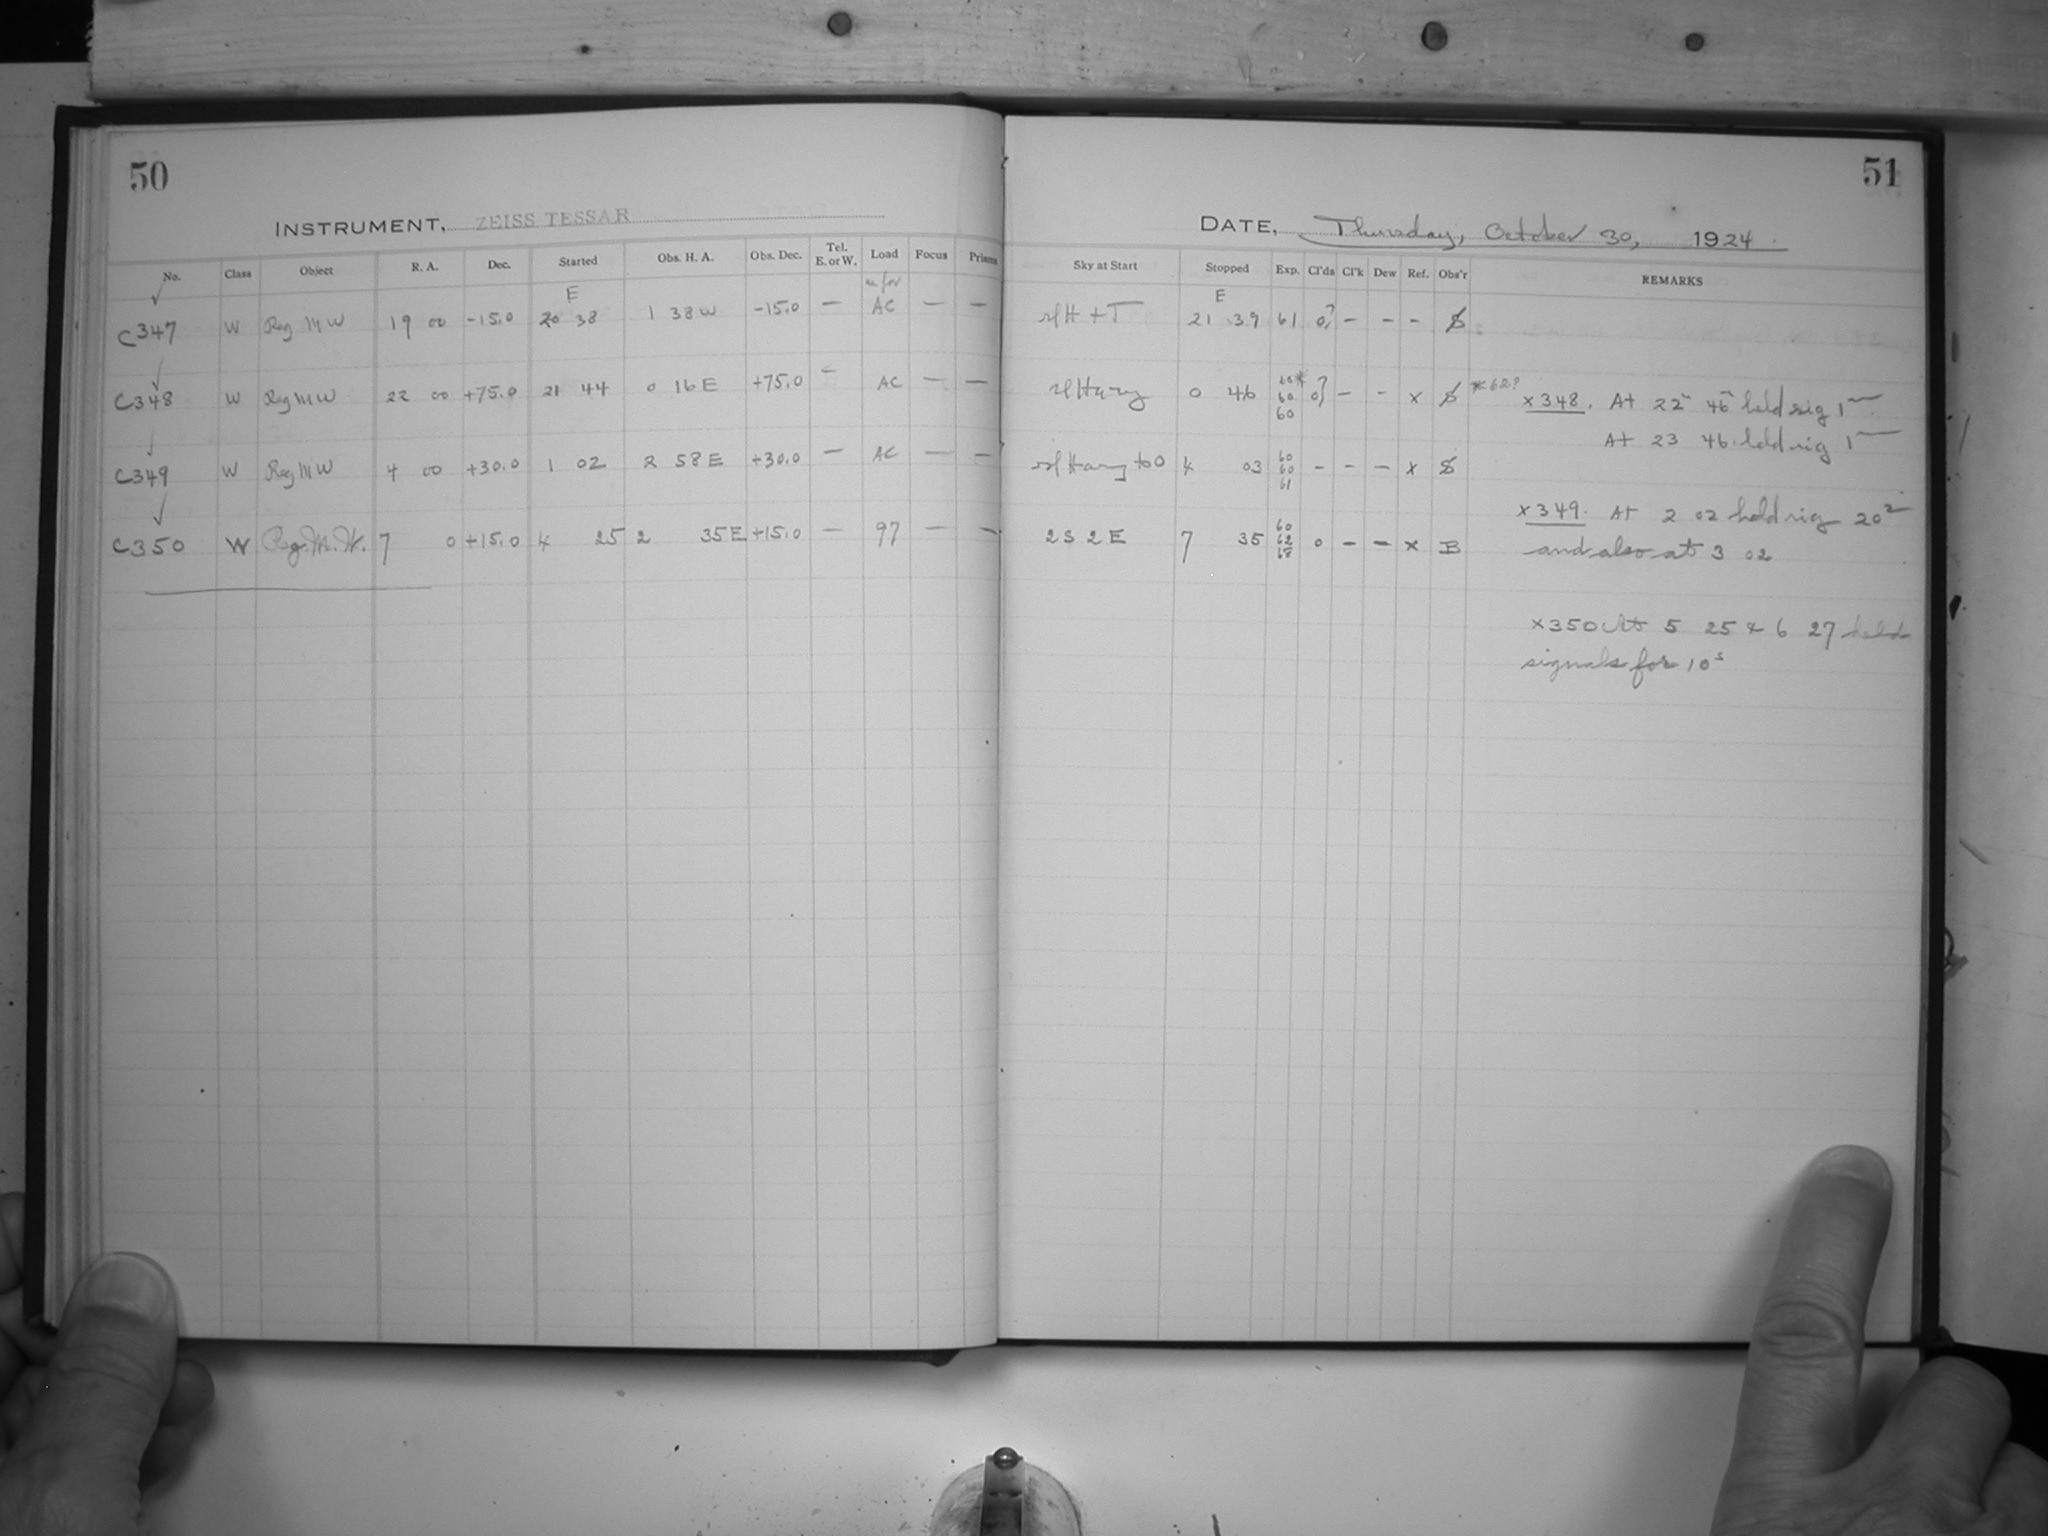 50
INSTRUMENT, ZEISS TESSAR
No. Class Object R. A. Dec. Started Obs. H. A. Obs. Dec. Tel. E. or W. Load Focus Prisms
E
C347 W Reg MW 19 00 -15.0 20 38 1 38 W -15.0 — AC — —
C348 W Reg MW 22 00 +75.0 21 44 0 16 E +75.0 — AC — —
C349 W Reg MW 4 00 +30.0 1 02 2 58 E +30.0 — AC — —
C350 W Reg. M. W. 7 0 +15.0 4 25 2 35 E +15.0 — 97 — —
51
DATE, Thursday, October 30, 1924
Sky at Start Stopped Exp. Cl'ds Cl'k Dew Ref. Obs'r REMARKS
E
H + T 21 39 61 0? – – –
0 46 60* 60 60 0? – – x
*62?
x348. At 22 46 held sig 1
At 23 46 held sig 1
4 03 60 60 61 – – – x S
x349. At 2 02 held sig 20
and also at 3 02
2 S 2 E 7 35 60 62 68 0 – – x B
x350 At 5 25 & 6 27 held
signals for 10s